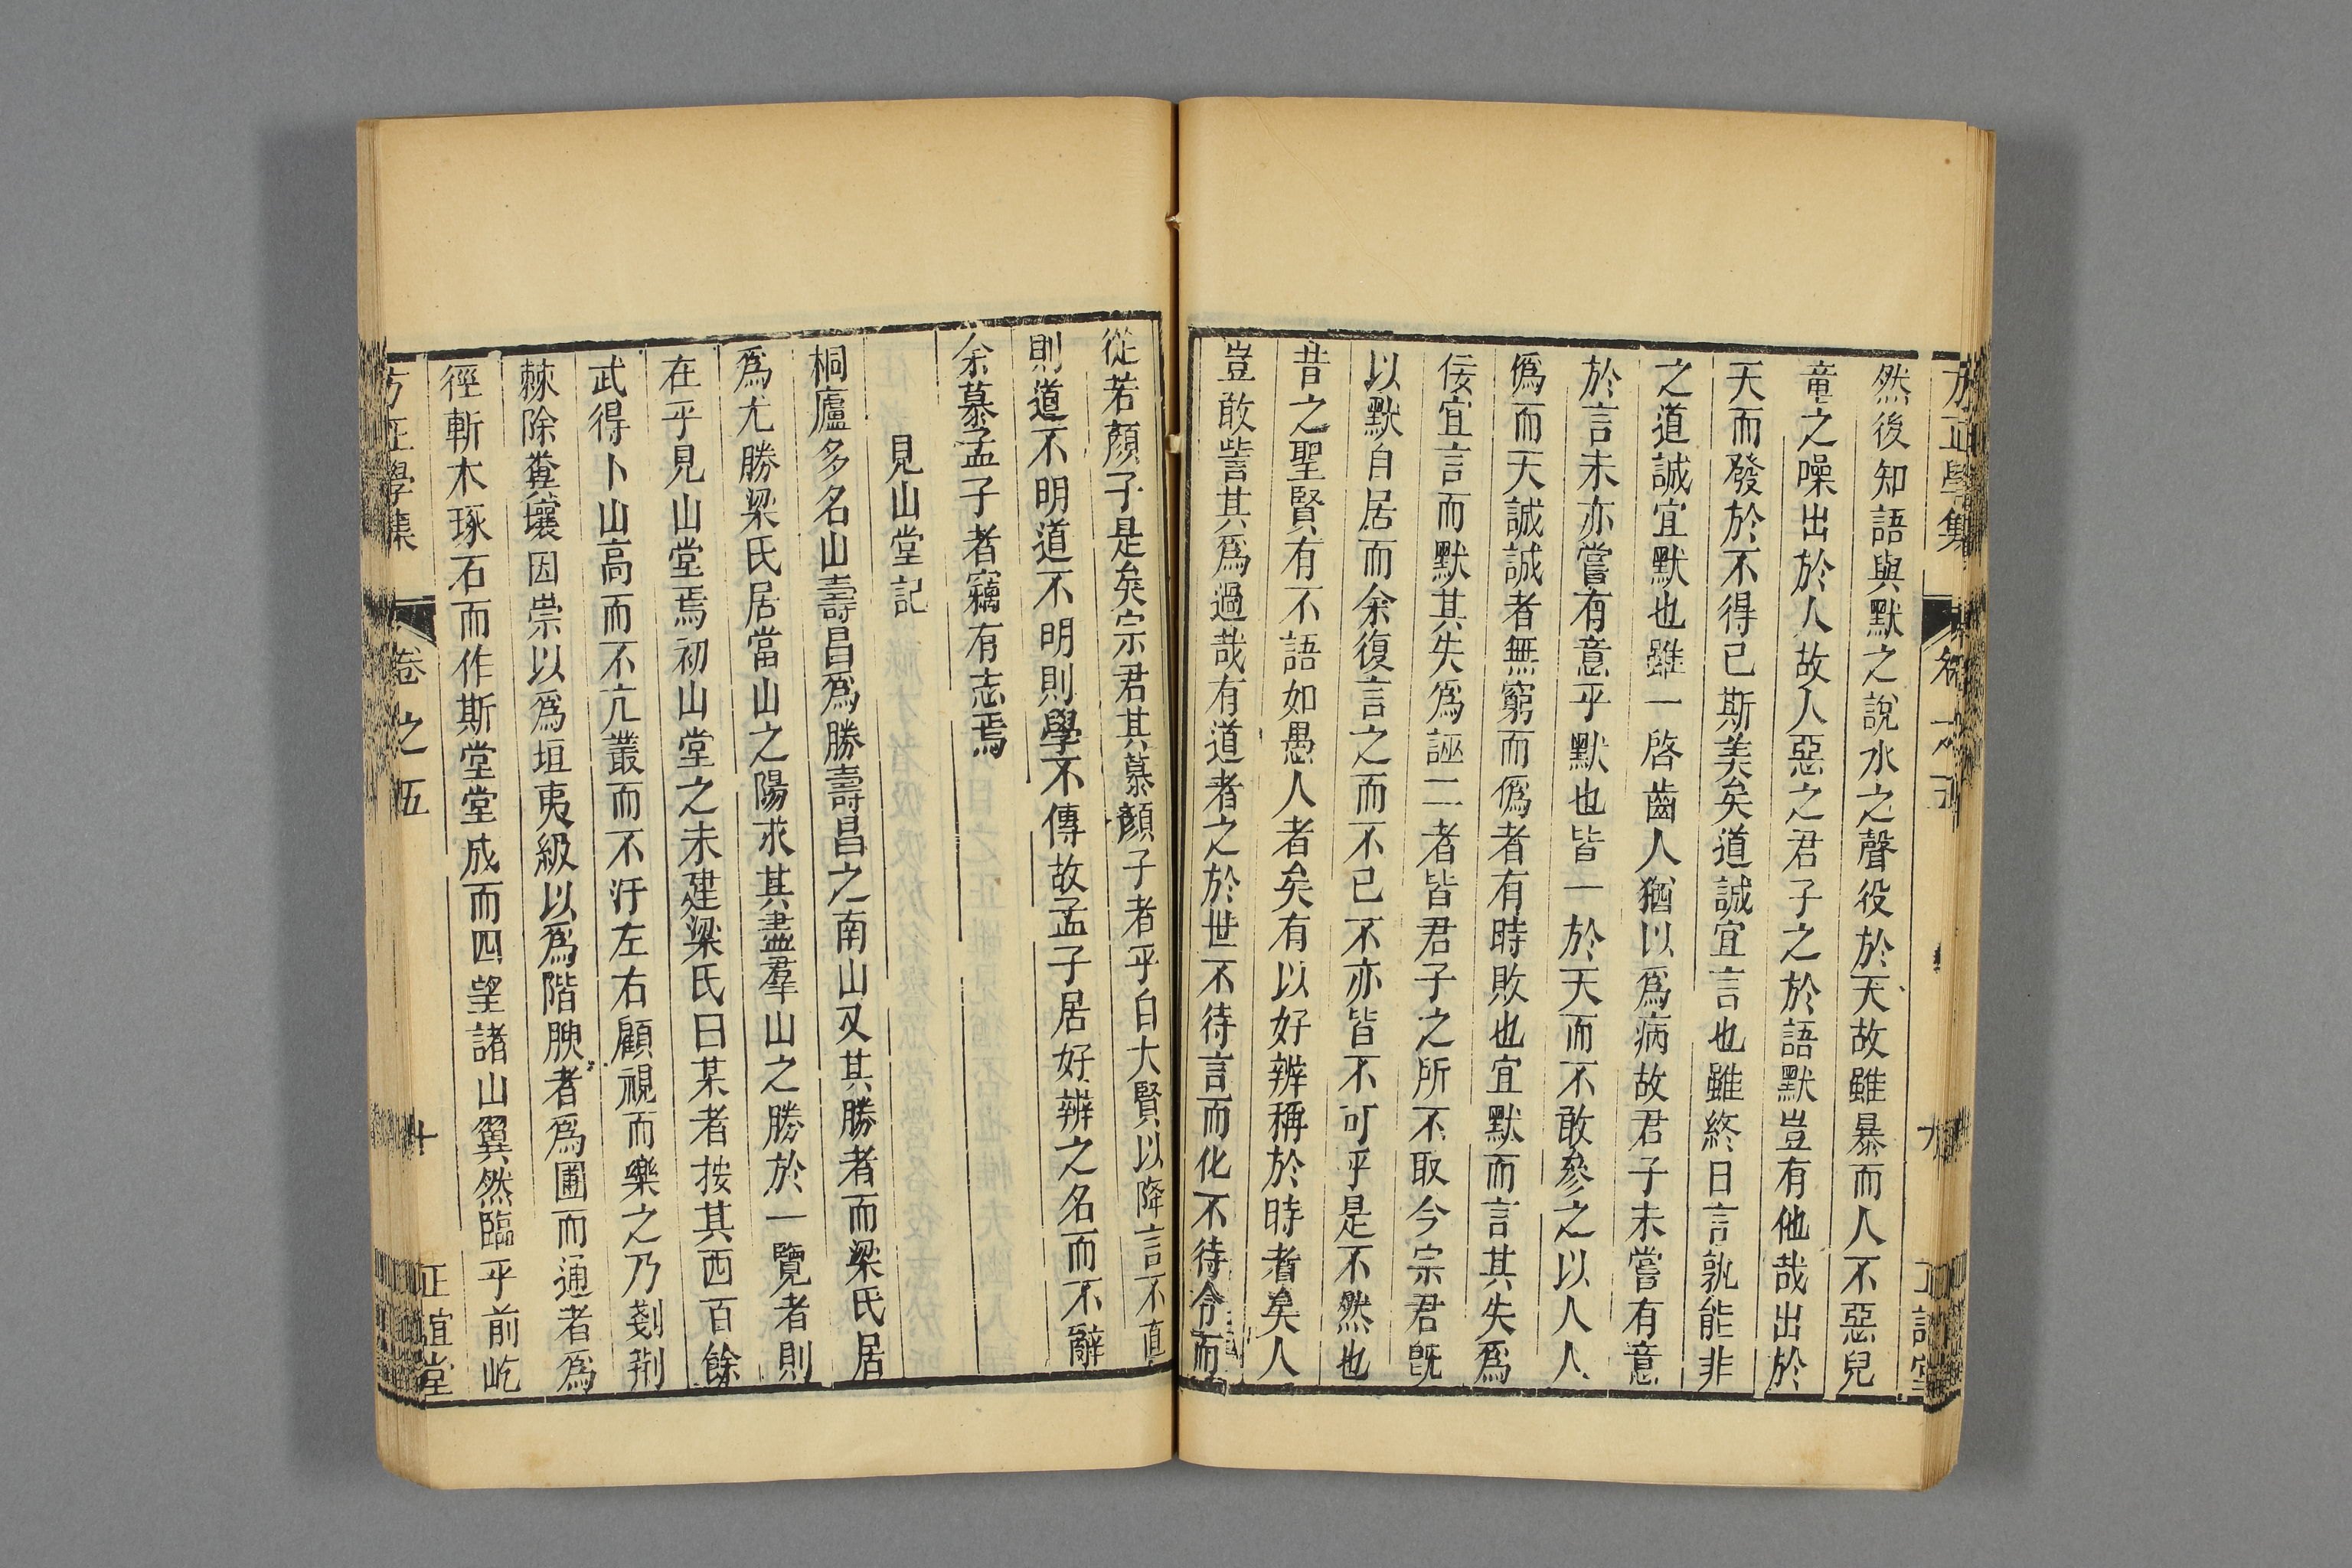 然後知語與默之說水之聲役於天故雖暴而人不惡兒
童之噪出於人故人惡之君子之於語默豈有他哉出於
天而發於不得已斯美矣道誠宜言也雖終日言孰能非
之道誠宜默也雖一啓齒人猶以爲病故君子未嘗有意
於言未亦嘗有意乎默也皆一於天而不敢參之以人人
僞而天誠誠者無窮而僞者有時敗也宜默而言其失爲
佞宜言而默其失爲誣二者皆君子之所不取今宗君旣
以默自居而余復言之而不已不亦皆不可乎是不然也
昔之聖賢有不語如愚人者矣有以好辨稱於時者矣人
豈敢訾其爲過哉有道者之於世不待言而化不待令而
從若顏子是矣宗君其慕顏子者乎自大賢以降言不直
則道不明道不明則學不傳故孟子居好辨之名而不辭
余慕孟子者竊有志焉
見山堂記
桐廬多名山壽昌爲勝壽昌之南山又其勝者而梁氏居
爲尤勝梁氏居當山之陽求其盡羣山之勝於一覽者則
在乎見山堂焉初山堂之未建梁氏曰某者按其西百餘
武得卜山高而不亢叢而不汙左右顧視而樂之乃剗荆
棘除糞壤因崇以爲垣夷級以爲階腴者爲圃而通者爲
徑斬木琢石而作斯堂堂成而四望諸山翼然臨乎前屹
方正學集 卷之五 十 正誼堂